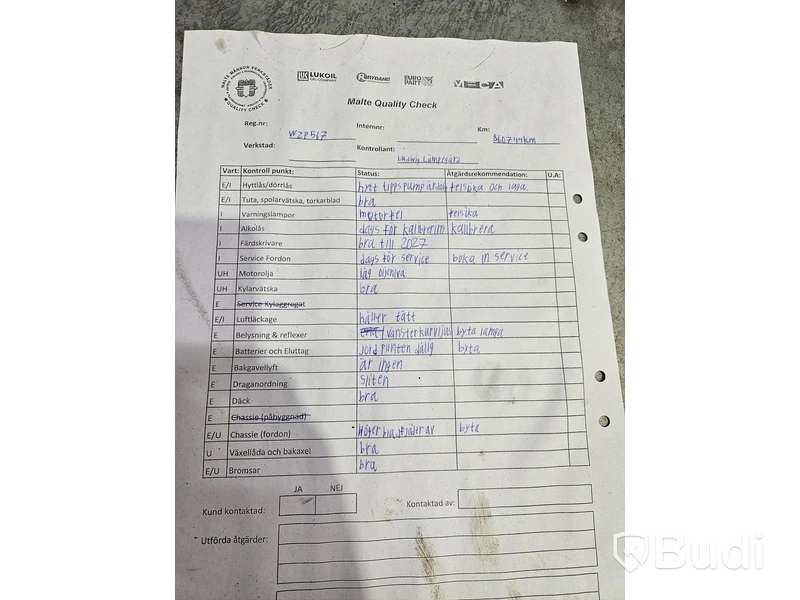 MALTE MÅNSON VERKSTÄDER
QUALITY CHECK
LUKOIL
OIL COMPANY
RYDAHLS
EURO PART
MECA
Malte Quality Check
Reg.nr: WZP567 Internnr: Km: 860744km
Verkstad: Kontrollant: Ludwig
Vart: Kontroll punkt: Status: Åtgärdsrekommendation: U.A:
E/I Hyttlås/dörrlås hytt tippspump felsöka och laga.
E/I Tuta, spolarvätska, torkarblad bra
I Varningslampor motorfel felsöka
I Alkolås dags för kalibrering kalibrera
I Färdskrivare bra till 2027
I Service Fordon dags för service boka in service
UH Motorolja låg oljenivå
UH Kylarvätska bra
E Service Kylaggregat
E/I Luftläckage håller tätt
E Belysning & reflexer vänsterkurvljus byta lampa
E Batterier och Eluttag jord punten dålig byta
E Bakgavellyft är ingen
E Draganordning sliten
E Däck bra
E Chassie (påbyggnad)
E/U Chassie (fordon) Höger av byta
U Växellåda och bakaxel bra
E/U Bromsar bra
JA NEJ
Kund kontaktad: Kontaktad av:
Utförda åtgärder:
Budi